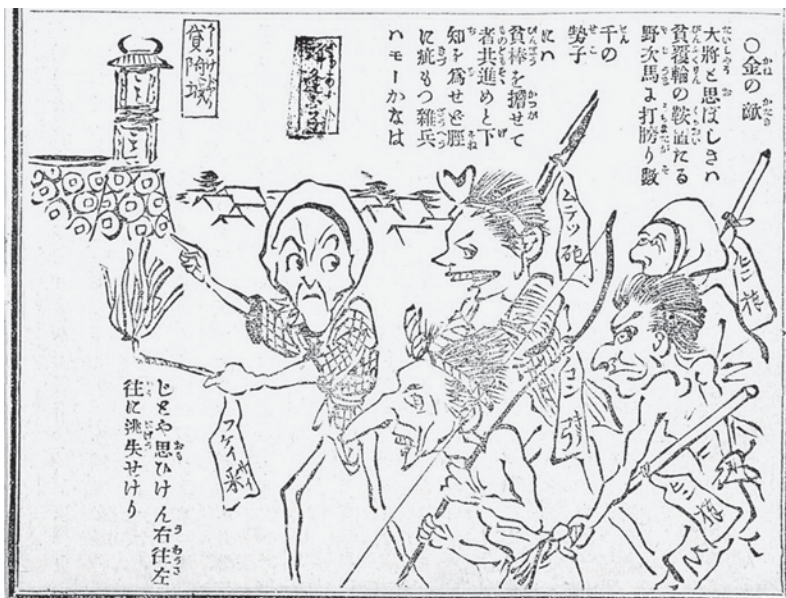 ○金の敵
大將と思ぼしきハ
貧覆輪の鞍置たる
野次馬に打胯り數
千の
勢子
にハ
貧棒を擔せて
者共進めと下
知を爲せど脛
に疵もつ雜兵
ハモーかなは
じとや思ひけん右往左
往に逃失せけり
貸附城
ムテツ砲
フケイ采
ヒン棒
ヒン棒